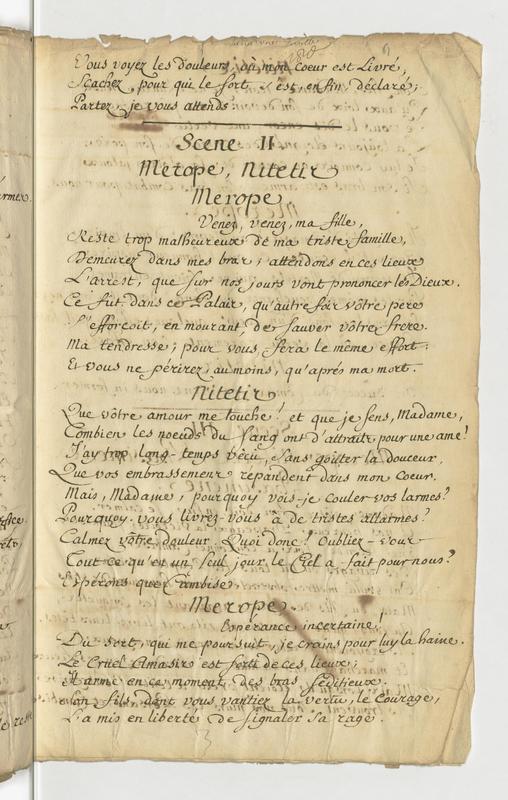 Vous voyez les douleurs, où mon coeur est Livré,
Sçachez, pour qui le sort s'est, enfin, déclaré;
Partez, je vous attends
Scene II
Merope, Nitetis
Merope.
Venez, venez, ma fille,
Reste trop malheureux de ma triste famille,
Demeurez dans mes bras; attendons en ces lieux
L'arrest, que sur nos jours vont prononcer les Dieux.
Ce fut dans ce Palais, qu'autrefois vôtre pere
S'efforçoit, en mourant, de sauver vôtre frere.
Ma tendresse, pour vous, fera le même effort:
Et vous ne périrez, au moins, qu'aprés ma mort.
Nitetis
Que vôtre amour me touche! et que je sens, Madame,
Combien les noeuds du sang ont d'attraits pour une ame!
J'ay trop long-temps vécu, sans goûter la douceur,
Que vos embrassemens repandent dans mon coeur.
Mais, Madame, pourquoy vois-je couler vos larmes?
Pourquoy vous livrez-vous à de tristes allarmes?
Calmez vôtre douleur. Quoi donc! Oubliez-vous
Tout ce qu'en un seul jour le Ciel a fait pour nous?
Esperons que Cambise
Merope.
Esperance incertaine!
Du sort, qui me poursuit, je crains pour luy la haine.
Le Cruel Amasis est sorti de ces lieux;
Il arme en ce moment des bras séditieux.
Son fils, dont vous vantiez la vertu, le Courage,
L'a mis en liberté de signaler sa rage.